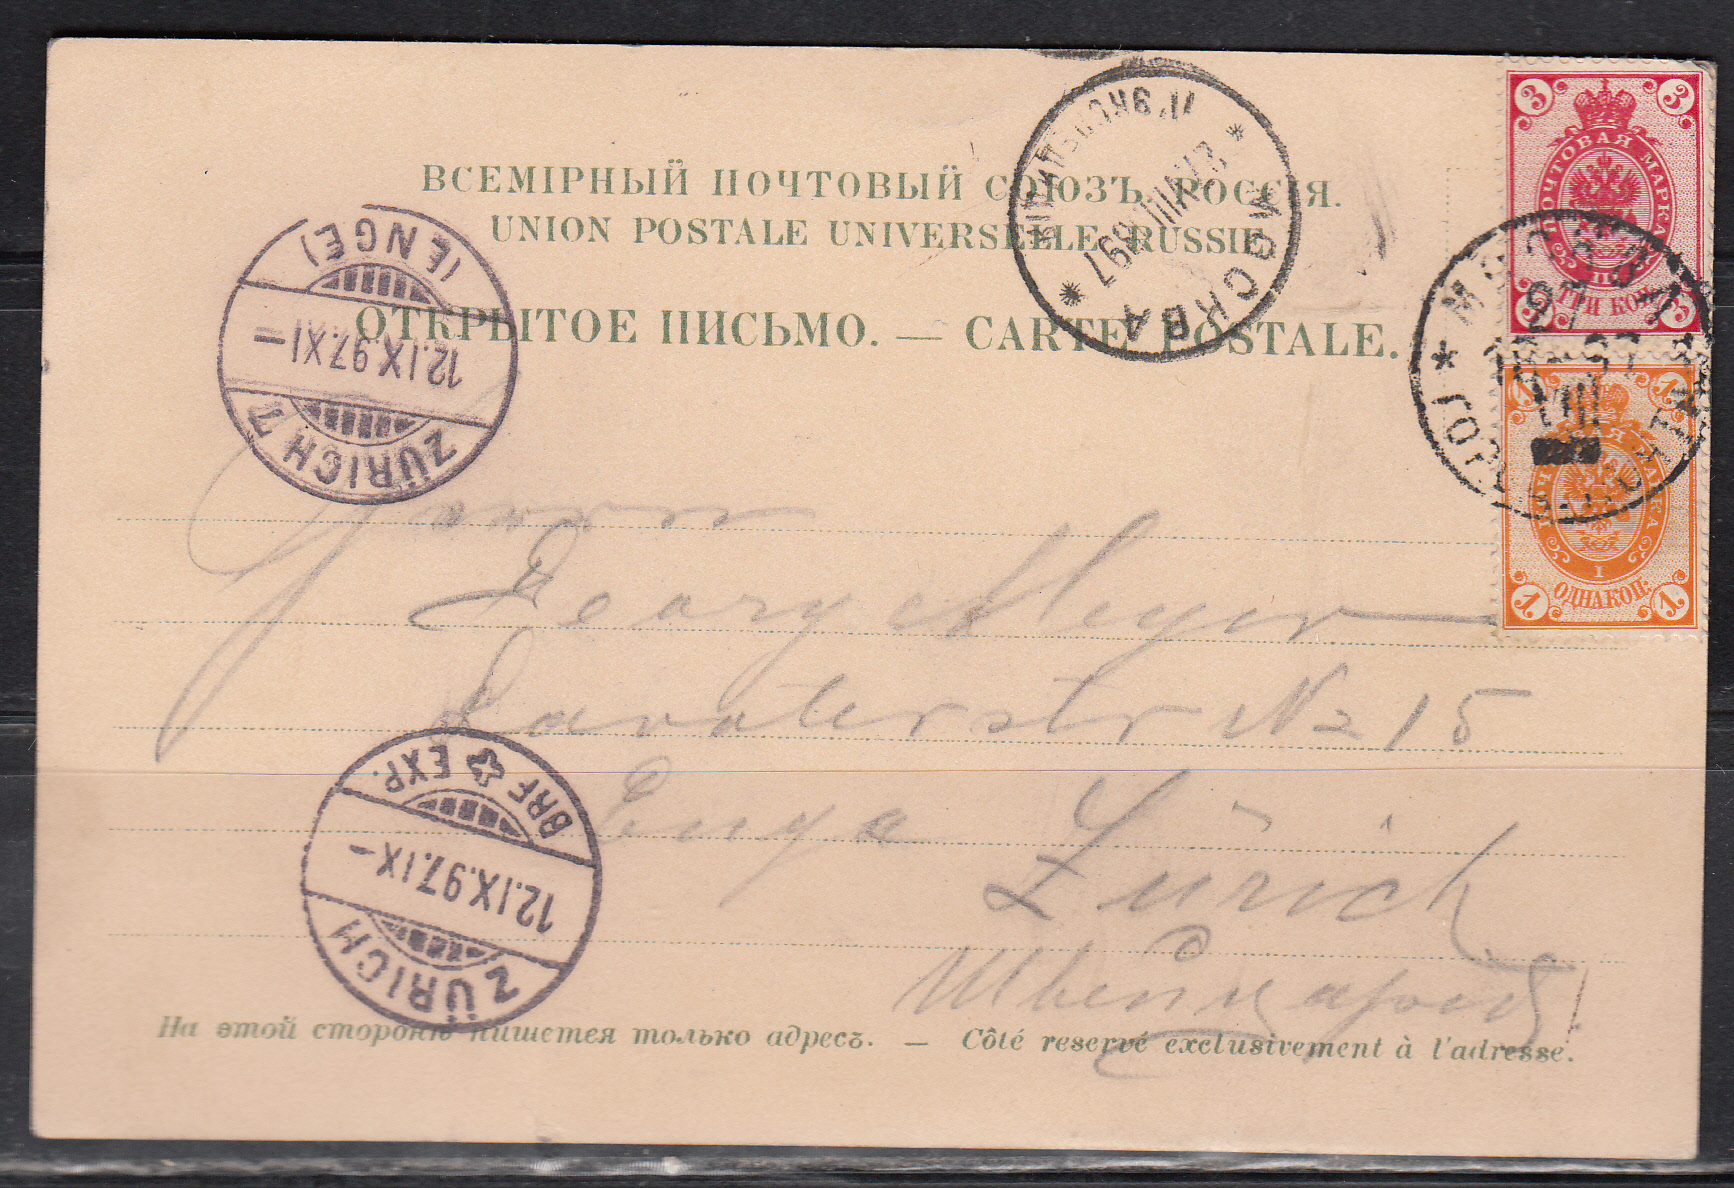 ВСЕМІРНЫЙ ПОЧТОВЫЙ СОЮЗЪ. РОССІЯ.
UNION POSTALE UNIVERSELLE. RUSSIE
ОТКРЫТОЕ ПИСЬМО. — CARTE POSTALE.
3 3
ПОЧТОВАЯ МАРКА
ТРИ КОП.
3 3
1 1
МАРКА
1
ОДНА КОП.
1 1
МОСКВА
VIII 1897
МОСКВА
VIII
97
(ENGE)
12.IX.97.XI–
ZÜRICH 7
Georg Meyer
Lavaterstr № 15
Enge
Zürich
BRF EXP.
12.IX.97.IX–
ZÜRICH
На этой сторонѣ пишется только адресъ. — Côté reservé exclusivement à l'adresse.